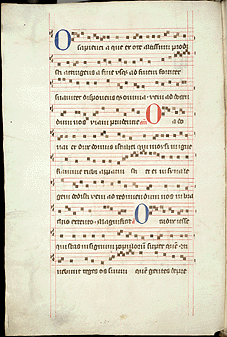 O sapientia que ex ore altissimi prodi
sti attingens a fine usqz ad finem fortiter
suauiter disponensqz omnia ueni ad docen
dum nos uiam prudentie O a do
nai et dux domus israhel qui moysi in igne
flamme rubi apparui sti et ei in syna le
gem dedisti ueni ad redimendum nos in bra
chio extento Magnificat O radix iesse
qui stas in signum populorum super quem con
tinebunt reges os suum quem gentes depre